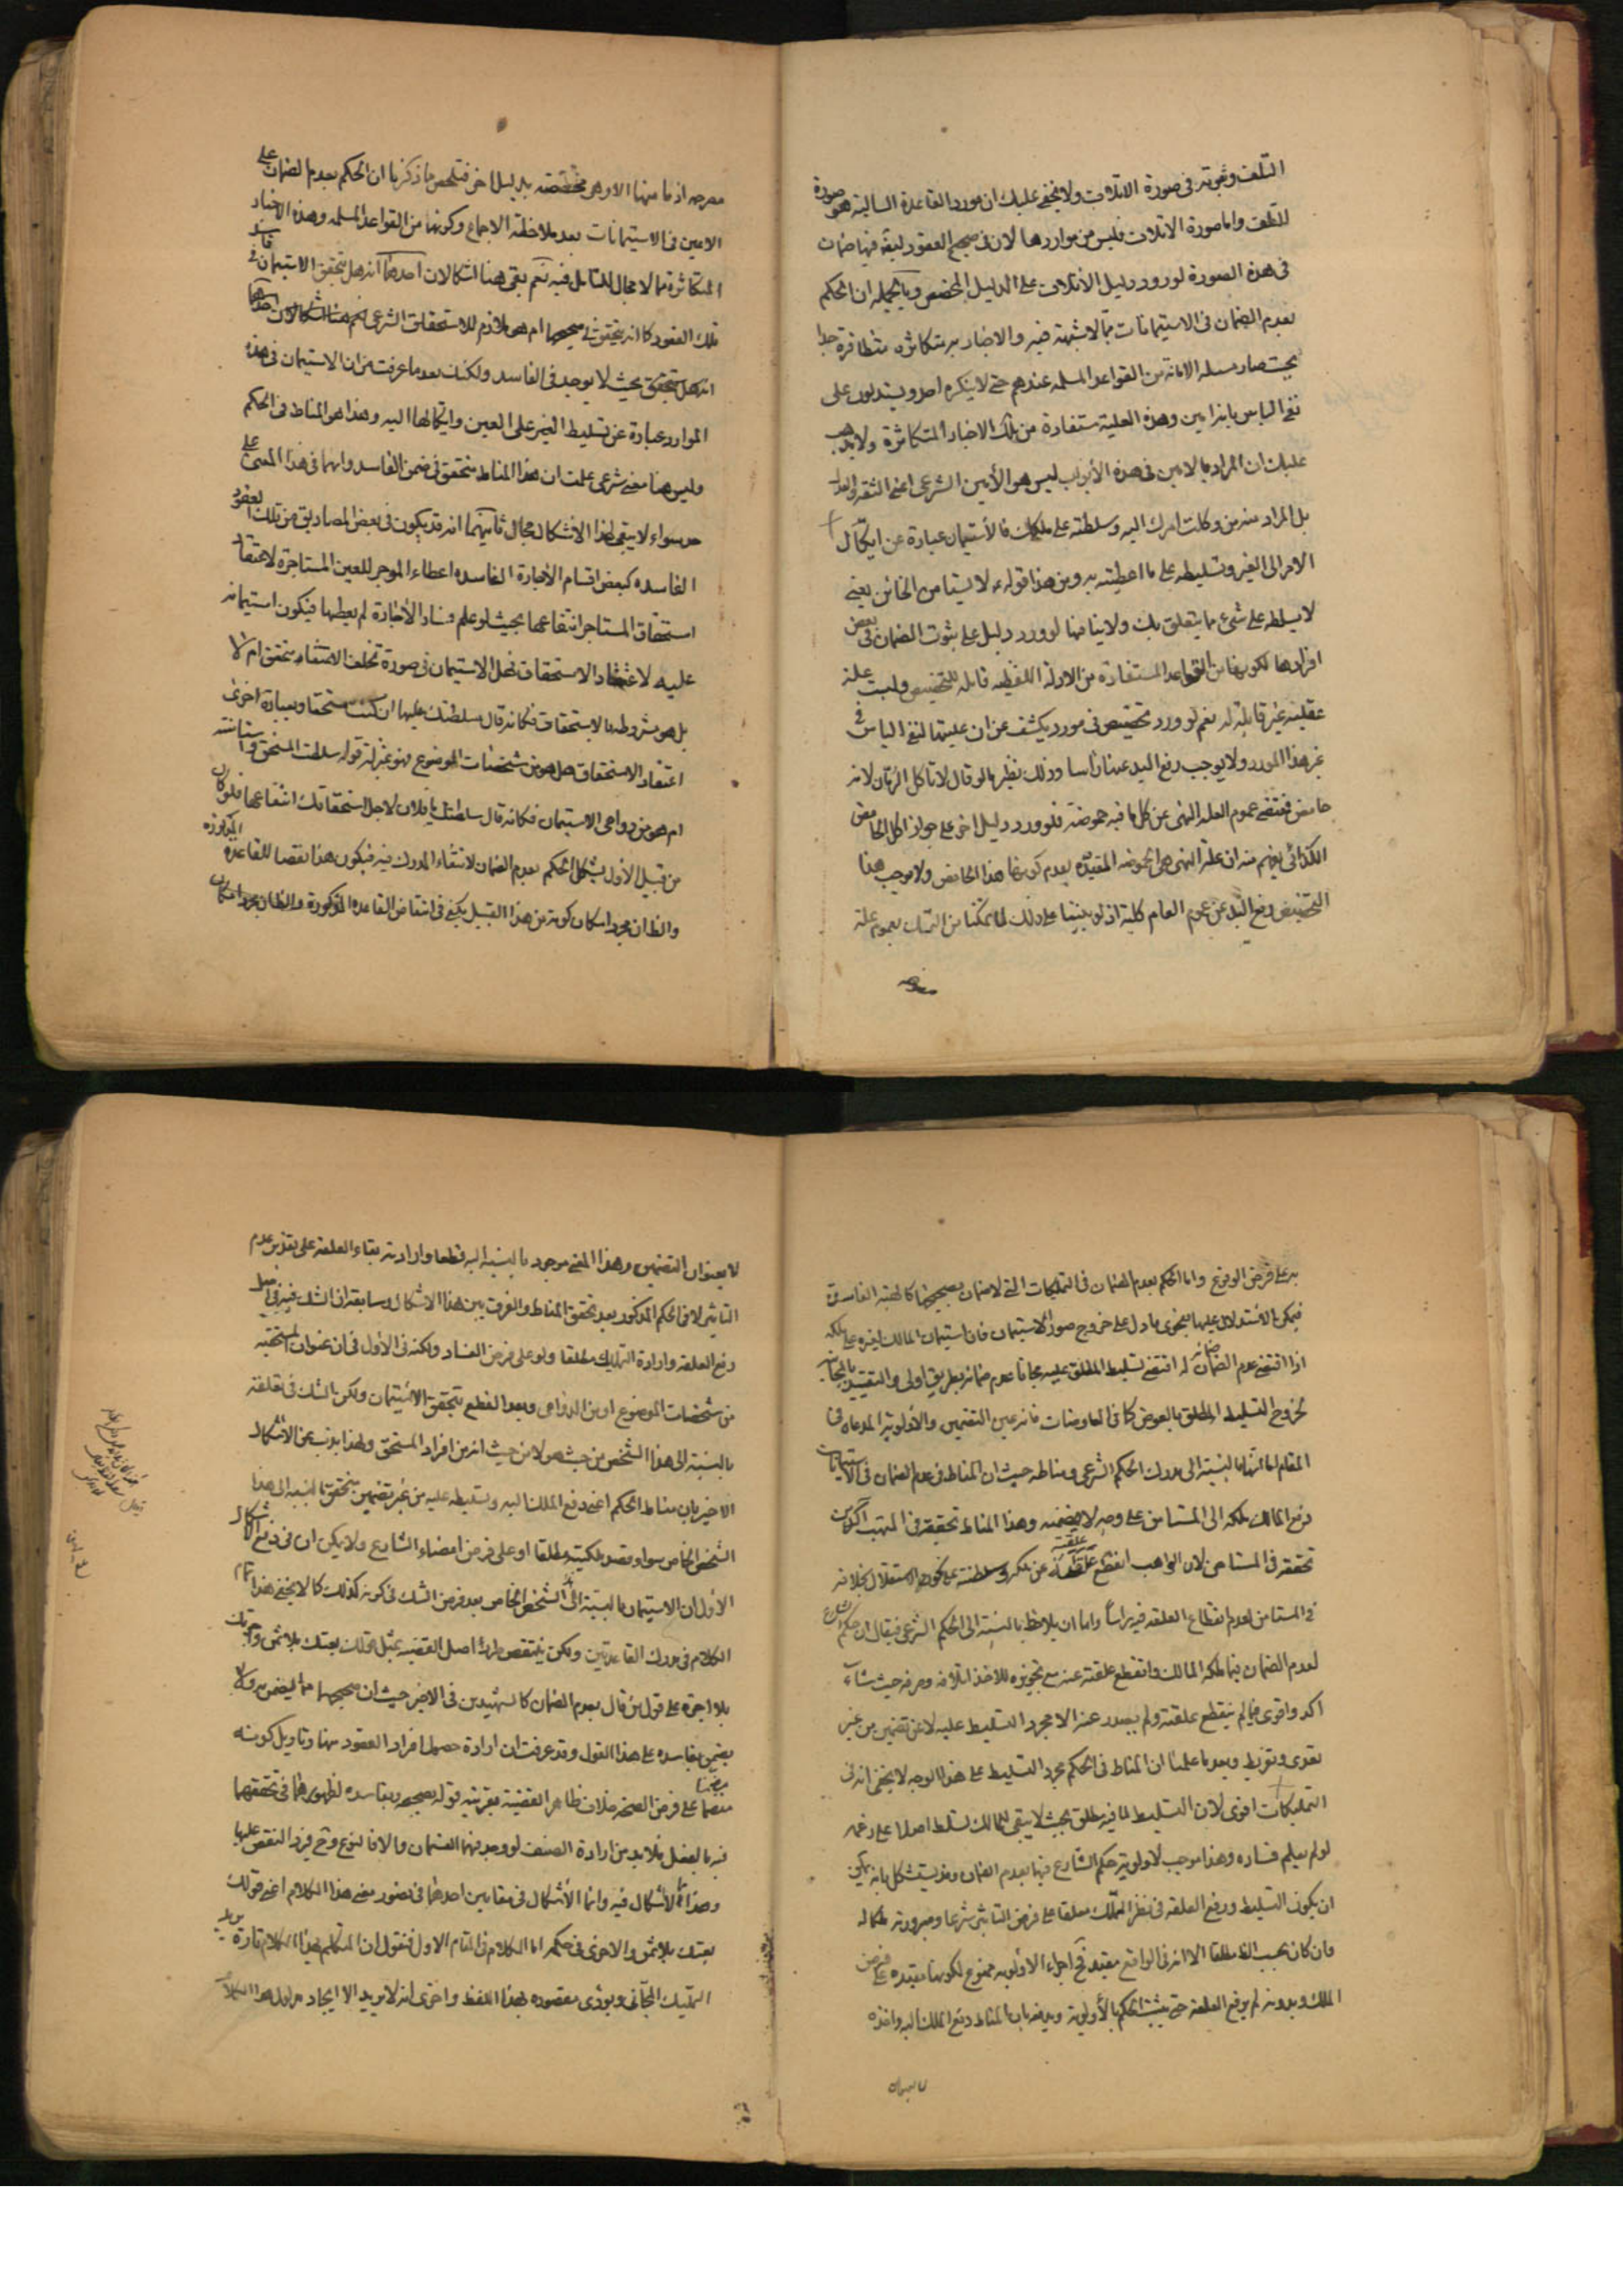 التلف وثبوته فى صورة الاتلاف ولا يخفى عليك ان مورد القاعدة السالبة هو صورة
للتلف واما صورة الاتلاف فليس من مواردها لان فى صحيح العقود ليقه فيها ضمان
فى هذه الصورة لورود دليل الاتلاف على الدليل المخصص وبالجمله ان الحكم
بعدم الضمان فى الاستيمانات مما لا شبهة فيه والاخبار به متكاثره متظافرة جدا
بحيث صار مسئله الامانة من القواعد المسلمه عندهم حتى لا ينكره احد ويستدلون على
نفى الباس بانه امين وهذه العلية مستفادة من تلك الاخبار المتكاثرة ولا يذهب
عليك ان المراد بالامين فى هذه الأبواب ليس هو الأمين الشرعى اعنى الثقه والعدل
بل المراد منه من وكلت امرك اليه وسلطته على ملكك فالأستيمان عبارة عن ايكال
الامر الى الغير وتسليطه على ما اعطيته به ومن هذا قوله لا تستامن الخائن يعنى
لا يسلطه على شئ مما يتعلق بك ولا ينافيها لو ورد دليل على ثبوت الضمان فى بعض
افرادها لكونها من القواعد المستفادة من الادلة اللفظيه قابله للتخصيص وليست علة
عقليه غير قابلة له نعم لو ورد تخصيص فى مورد يكشف عن ان عليتها لنفى الباس فى
غير هذا المورد ولا يوجب رفع اليد عنها راسا وذلك نظير ما لو قال لا تاكل الرمان لانه
حامض فمقتضى عموم العلة النهى عن كل ما فيه حموضة فلو ورد دليل اخر على جواز اكل الحامض
الكذائى يفهم منه ان علة النهى هى الحموضه المقيده بعدم كونها هذا الحامض ولا يوجب هذا
التخصيص رفع اليد عن عموم العام كلية اذ لو بنينا على ذلك لما تمكننا من التمسك بعموم علة
معرحه اذ ما منها الا وهى مخصصة بدليل اخر فتلخص مما ذكرنا ان الحكم بعدم الضمان على
الامين فى الاستيمانات بعد ملاحظة الاجماع وكونها من القواعد المسلمه وهذه الاخبار
المتكاثرة مما لا مجال للتامل فيه نعم بقى هنا اشكالات احدهما انه هل يتحقق الاستيمان فى فاسد
تلك العقود كما انه يتحقق فى صحيحها ام هو ملازم للاستحقاق الشرعى
انه هل يتحقق بحيث لا يوجد فى الفاسد ولكنك بعد ما عرفت من ان الاستيمان فى هذه
الموارد عبارة عن تسليط الغير على العين وايكالها اليه وهذا هو المناط فى الحكم
وليس هنا معنى شرعى علمت ان هذا المناط متحقق فى ضمن الفاسد وانهما فى هذا المعنى على
حد سواء لا يبقى لهذا الاشكال مجال ثانيهما انه قد يكون فى بعض المصاديق من تلك العقود
الفاسده كبعض اقسام الأجارة الفاسده اعطاء الموجر للعين المستاجرة لاعتقاد
استحقاق المستاجر انتفاعها بحيث لو علم فساد الأجارة لم يعطها فيكون استيمانه
عليه لاعتقاد الاستحقاق فهل الاستيمان فى صورة تخلف الاعتقاد متحقق ام لا
بل هو مشروط بالاستحقاق فكانه قال سلطتك عليها ان كنت مستحقا وبعبارة اخرى
اعتقاد الاستحقاق هل هو من مشخصات الموضوع فهو بمنزلة قوله سلطت المستحق
ام هو من دواعى الاستيمان فكانه قال سلطتك يا فلان لاجل استحقاقك انتفاعها فلو كان
من قبيل الأول يشكل الحكم بعدم الضمان لانتفاء المدرك فيه فيكون هذا نقضا للقاعدة المذكورة
والظ ان مجرد امكان كونه من هذا القبيل يكفى فى انتقاض القاعده المذكورة
به على فرض الوقوع واما الحكم بعدم الضمان فى التمليكات التى لا ضمان بصحيحها كالهبة الفاسدة
فيمكن الاستدلال عليها بفحوى ما دل على خروج صور الاستيمان فان استيمان المالك لغيره على ملكه
اذا اقتضى عدم الضمان له اقتضى تسليط المطلق عليه مجانا عدم ضمانه بطريق اولى والتقييد بالمجانية
لخروج التسليط المطلق بالعوض كما فى المعاوضات فانه عين التضمين والأولوية المدعاة فى
المقام اما بالنسبة الى مدرك الحكم الشرعى ومناطه حيث ان المناط فى عدم الضمان فى الاستيمانات
دفع المالك ملكه الى المستامن على وجه لا يضمنه وهذا المناط تحققه فى المتهب اكد من
تحققه فى المستامن لان الواهب انقطع علقته عن ملكه وسلطنته على نحو الاستقلال بخلافه
فى المستامن لعدم انقطاع العلقه فيه راسا واما ان يلاحظ بالنسبة الى الحكم الشرعى فيقال ان حكم الشارع
لعدم الضمان فيما ملكه المالك وانقطع علقته عنه مع تجويزه للاخذ اتلافه وصرفه حيث شاء
اكد واقوى فيما لم ينقطع علقته ولم يصدر عنه الا مجرد التسليط عليه لا عن تضمين من غير
تعدى وتفريط وبعد ما علمنا ان المناط فى الحكم مجرد التسليط على هذا الوجه لا يخفى انه فى
التمليكات اقوى لان التسليط لما فيه مطلق بحيث لا يبقى للمالك تسلط اصلا على زعمه
لو لم يعلم فساده وهذا موجب لاولوية حكم الشارع فيها بعدم الضمان وقد يستشكل بانه يمكن
ان يكون التسليط ورفع العلقه فى نظر المملك معلقا على فرض التاثير شرعا وصيرورته ملكا له
وان كان بحسب الظ مطلقا الا انه فى الواقع مقيد فح اجراء الأولويه ممنوع لكونها مقيده على فرض
الملك وبدونه لم يرفع العلقه حتى يثبت الحكم بالأولوية ويدفعه بان المناط دفع الملك اليه
لا بعنوان التضمين وهذا المعنى موجود بالنسبة اليه قطعا وارادته بقاء العلقه على تقدير عدم
التاثير لا فى الحكم المذكور بعد تحقق المناط والفرق بين هذا الاشكال وسابقه ان الشك فيه فى
رفع العلقه وارادة التمليك مطلقا ولو على فرض الفساد ولكنه فى الأول فى ان عنوان المستحقيه
من مشخصات الموضوع او من الدواعى وبعد القطع بتحقق الاستيمان ولكن الشك فى تعلقه
بالنسبة الى هذا الشخص من حيث هو لا من حيث انه من افراد المستحق ولهذا يذب عن الاشكال
الاخير بان مناط الحكم اعنى دفع الملك اليه وتسليطه عليه من غير تضمين متحقق بالنسبه الى هذا
الشخص الخاص سواء قصد ملكيته مطلقا او على فرض امضاء الشارع ولا يمكن ان فى دفع الاشكال
الأول ان الاستيمان بالنسبة الى الشخص الخاص بعد فرض الشك فى كونه كذلك كما لا يخفى هذا تمام
الكلام فى مدرك القاعدتين ولكن ينتقض اصل القضيه بمثل قولك بعتك بلا ثمن واجرتك
بلا اجرة على قول من قال بعدم الضمان كالشهيدين فى الاخير حيث ان صحيحهما مما يضمن به ولا
يضمن بفاسده على هذا القول وقد عرفت ان ارادة خصوص افراد العقود منها وتاويل كونه
مضمنا على فرض الصحة خلاف ظاهر القضية بقرينه قوله بصحيحه وبفاسده لظهورهما فى تحققهما
فيه بالفعل فلا بد من ارادة الصنف لو وجد فيهما الضمان والا فالنوع وح فورد النقض عليها
وهذا مما لا اشكال فيه وانما الأشكال فى مقامين احدهما فى تصور معنى هذا الكلام اعنى قولك
بعتك بلا ثمن والاخرى فى حكمه اما الكلام فى المقام الاول فنقول ان المتكلم بهذا الكلام تارة يريد
التمليك المجانى ويؤدى مقصوده بهذا اللفظ واخرى انه لا يريد الا ايجاد مدلول هذا الكلام